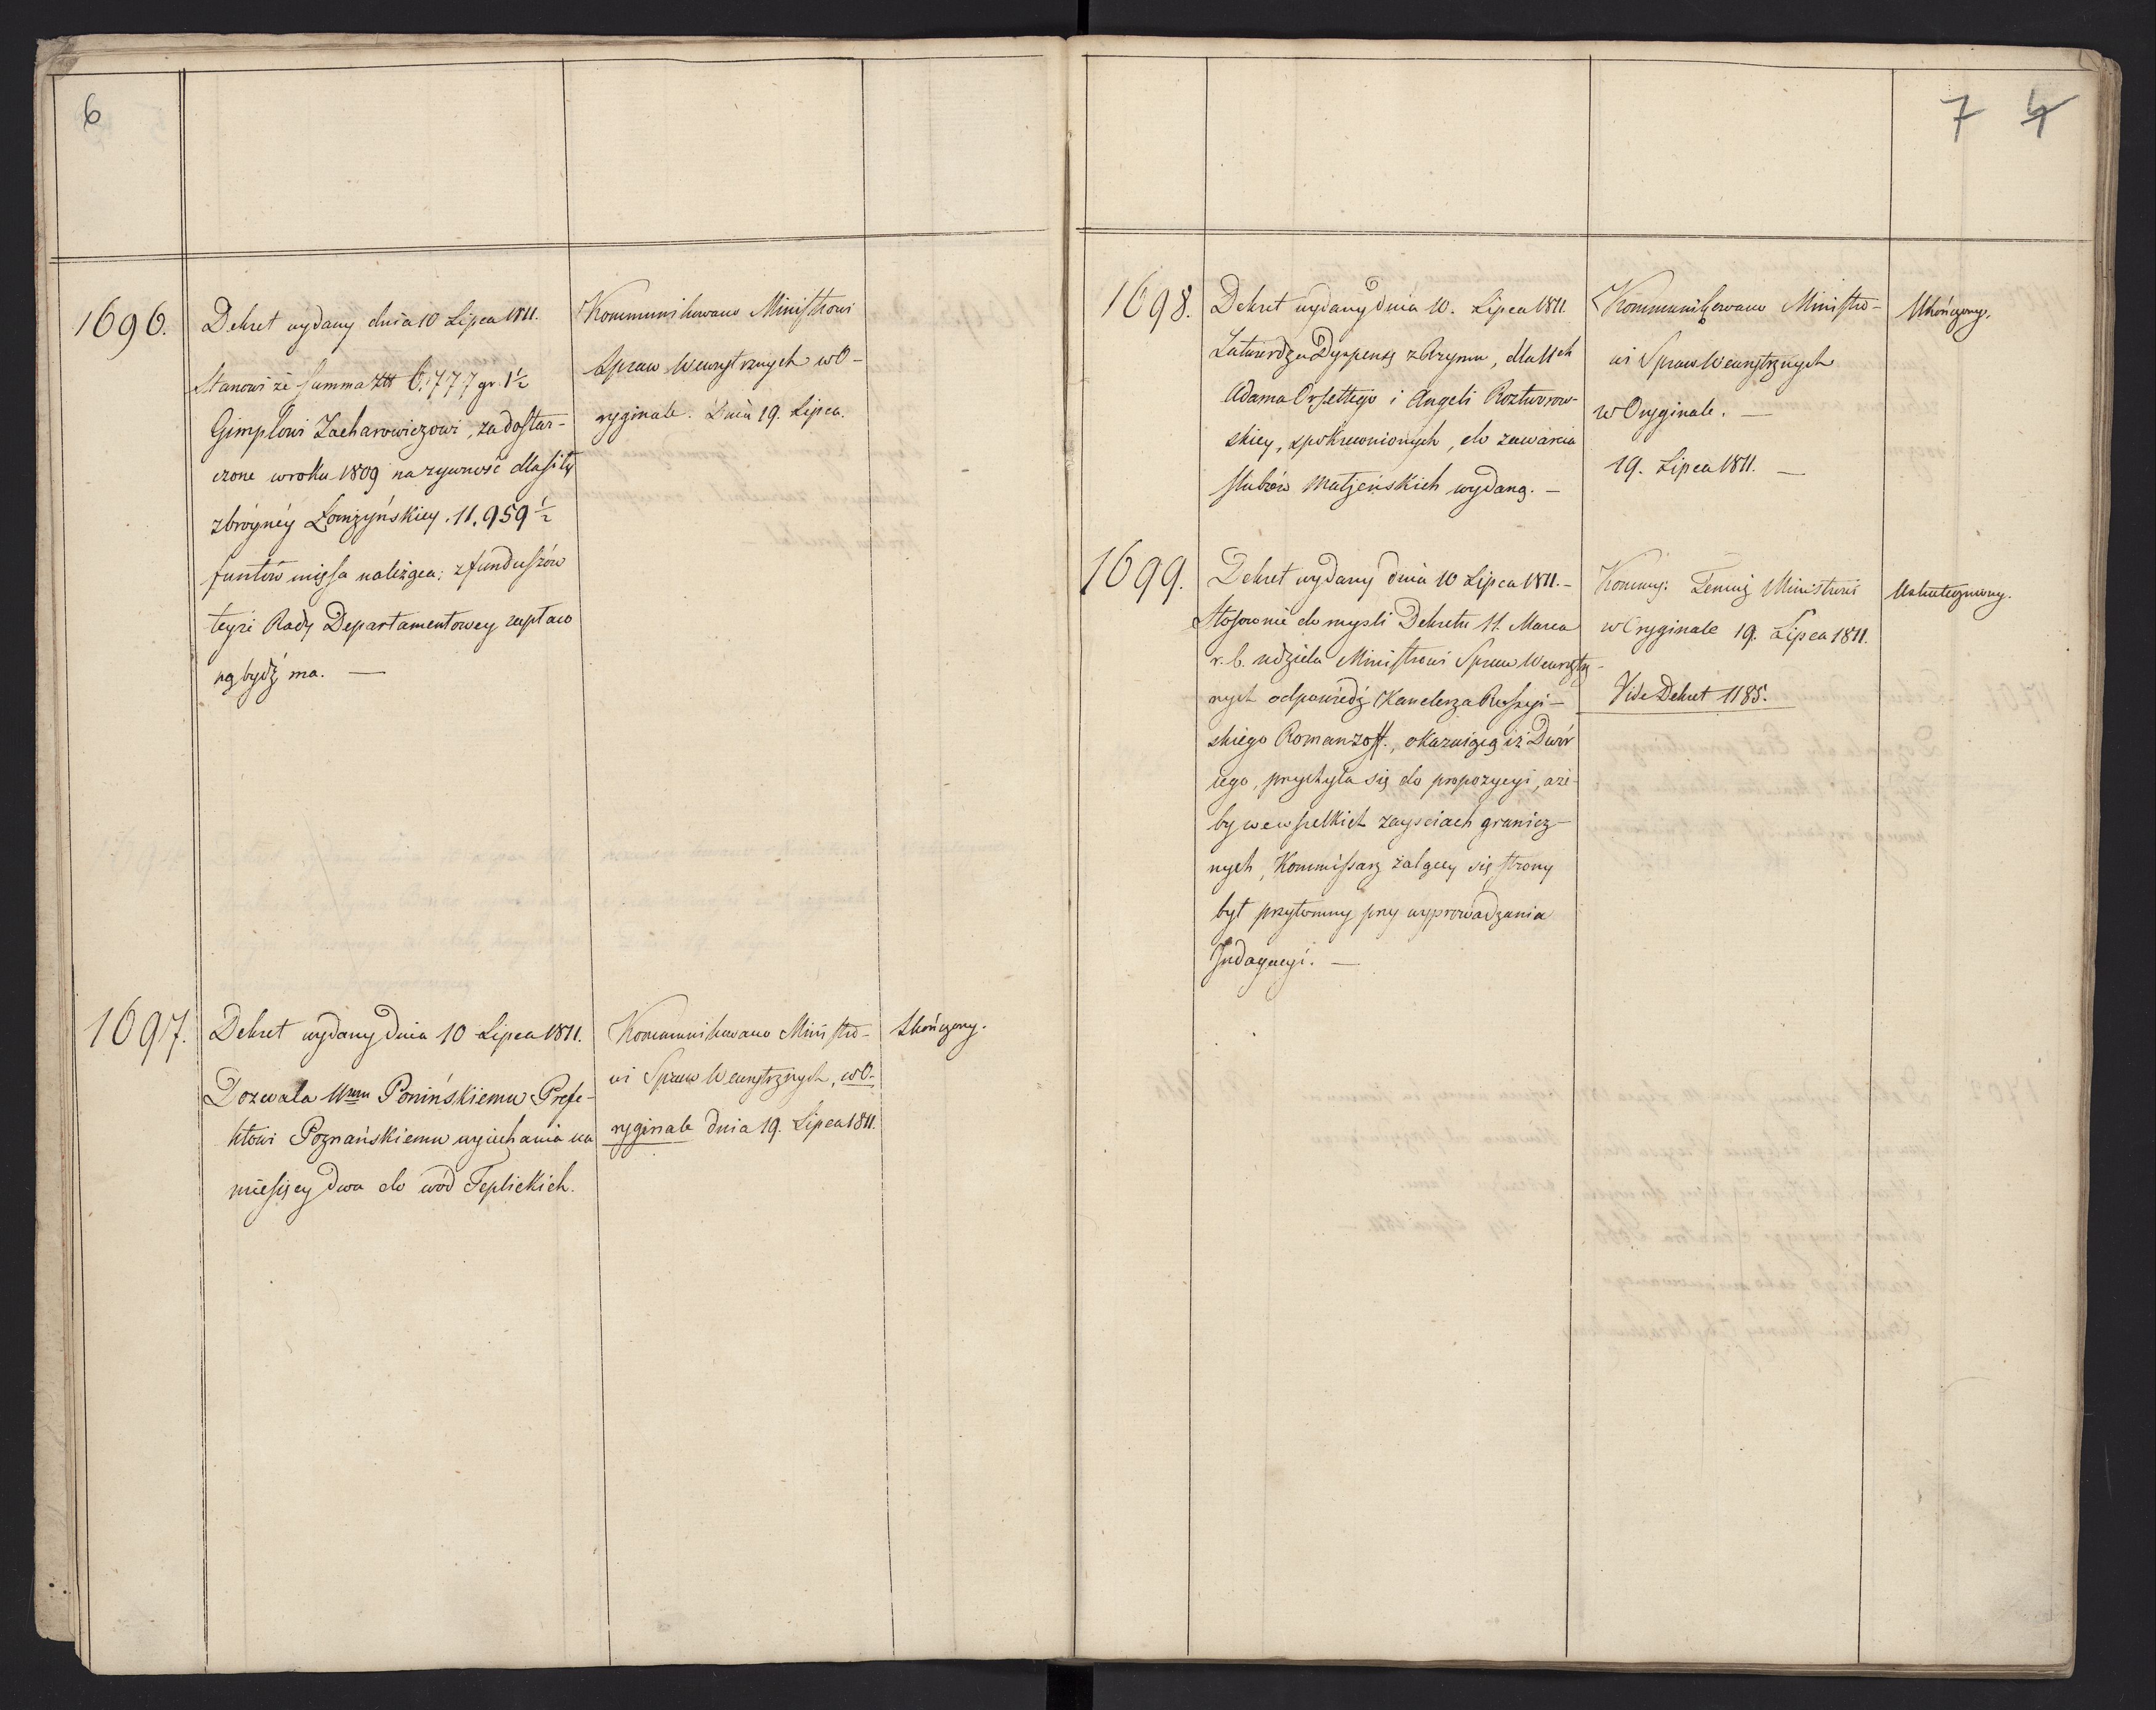 6
1696.
Dekret wydany dnia 10 Lipca 1811.
Stanowi że summa Złł 6.777 gr. 1½
Gimplowi Zacharowiczowi, za dostar-
czone w roku 1809 na zywność dla siły
zbróynéy Łomżyńskiey. 11.959½
funtów mięsa należąca; z funduszów
teyże Rady Departamentowey zapłaco
ną bydź ma. —
Kommunikowano Ministrowi
Spraw Wewnętrznych w O-
ryginale. Dnia 19. Lipca.
1697.
Dekret wydany dnia 10 Lipca 1811.
Dozwala Wmu Ponińskiemu Prefe-
ktowi Poznańskiemu wyiechania na
miesięcy dwa do wód Teplickich.
Kommunikowano Ministro-
wi Spraw Wewnętrznych, w O-
ryginale dnia 19. Lipca 1811.
Skończony.
7 4
1698.
Dekret wydany dnia 10. Lipca 1811.
Zatwierdza Dyspensę z Rzymu, dla UUch
Adama Orsettego i Angeli Roztworow-
skiey, spokrewnionych, do zawarcia
slubów Małżeńskich wydaną. —
Kommunikowano Ministro-
wi Spraw Wewnętrznych
w Oryginale. —
19. Lipca 1811. —
Ukończony.
1699.
Dekret wydany dnia 10 Lipca 1811. –
Stosownie do mysli Dekretu 11. Marca
r. b. udziela Ministrowi Spraw Wewnętrz-
nych odpowiedź Kanclerza Rossyi-
skiego Romanzoff., okazuiącą iż Dwór
iego, przychyla się do propozycyi, aże-
by we wszelkich zayściach granicz-
nych, Kommissarz żalącey się strony
był przytomny przy wyprowadzania
Indagacyi. —
Kommuj: Temuż Ministrowi
w Oryginale 19. Lipca 1811.
Vide Dekret 1185.
Uskuteczniony.